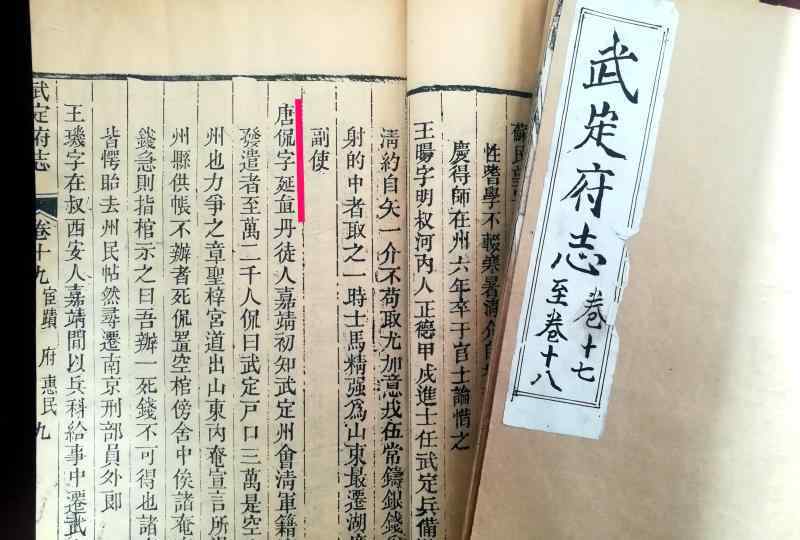 武定府志
卷十七
至卷十八
性嗜學不輟寒暑清介自
慶得師在州六年卒于官士論惜之
王暘字明叔河內人正德甲戌進士任武定兵備
淸約自矢一介不苟取尤加意戎伍常鑄銀錢
射的中者取之一時士馬精强爲山東最遷湖
副使
唐侃字延直丹徒人嘉靖初知武定州會淸軍籍
發遣者至萬二千人侃曰武定戸口三萬是空
州也力爭之章聖梓宮道出山東內奄宣言所
州縣供帳不辦者死侃置空棺傍舍中俟諸奄
錢急則指棺示之曰吾辦一死錢不可得也諸
皆愕眙去州民帖然尋遷南京刑部員外郎
王璣字在叔西安人嘉靖間以兵科給事中遷武
武定府志 卷十九 宦蹟 府 惠民 九